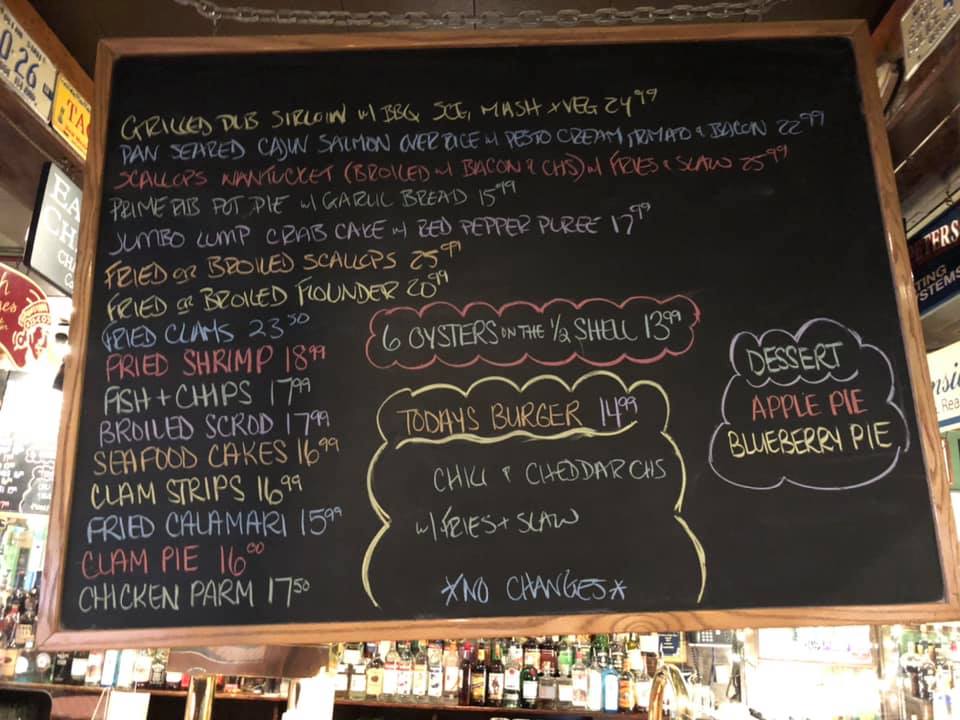 GRILLED DUB SIRLOIN w/ BBQ SCE, MASH + VEG 24.99
PAN SEARED CAJUN SALMON OVER RICE w/ PESTO CREAM, TOMATO & BACON 22.99
SCALLOPS NANTUCKET (BROILED w/ BACON & CHS) w/ FRIES & SLAW 25.99
PRIME RIB POT PIE w/ GARLIC BREAD 15.99
JUMBO LUMP CRAB CAKE w/ RED PEPPER PUREE 17.99
FRIED OR BROILED SCALLOPS 25.99
FRIED OR BROILED FLOUNDER 20.99
FRIED CLAMS 23.50
FRIED SHRIMP 18.99
FISH + CHIPS 17.99
BROILED SCROD 17.99
SEAFOOD CAKES 16.99
CLAM STRIPS 16.99
FRIED CALAMARI 15.99
CLAM PIE 16.00
CHICKEN PARM 17.50
6 OYSTERS ON THE 1/2 SHELL 13.99
TODAYS BURGER 14.99
CHILI & CHEDDAR CHS
w/ FRIES + SLAW
*NO CHANGES*
DESSERT
APPLE PIE
BLUEBERRY PIE